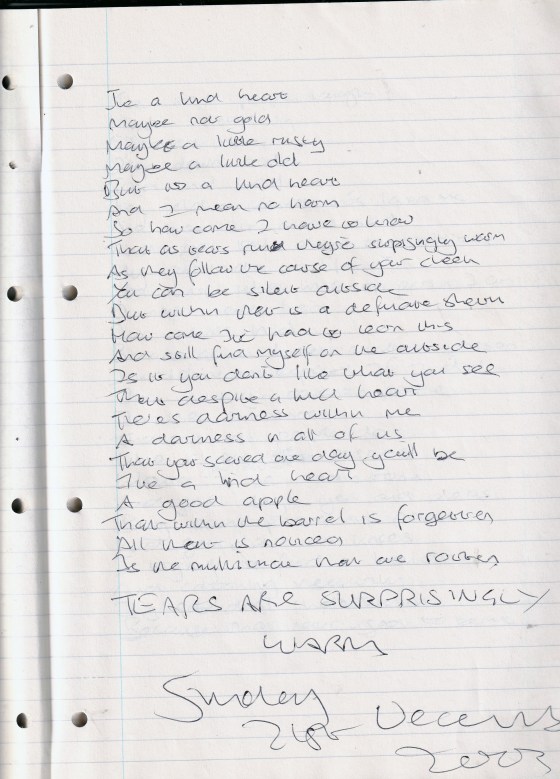 I've a kind heart
Maybe not gold
Maybe a little rusty
Maybe a little old
But its a kind heart
And I mean no harm
So how come I have to know
That as tears run they're surpisingly warm
As they follow the course of your cheek
You can be silent outside
But within there is a definate
How come I've had to learn this
And still find myself on the outside
Is it you don't like what you see
That despite a kind heart
Theres darness within me
A darness in all of us
That your scared one day you'll be
I've a kind heart
A good apple
That within the barrel is forgotten
All that is noticed
Is the multitude that are rotten
TEARS ARE SURPRISINGLY
WARM
Sunday
21st December
2003